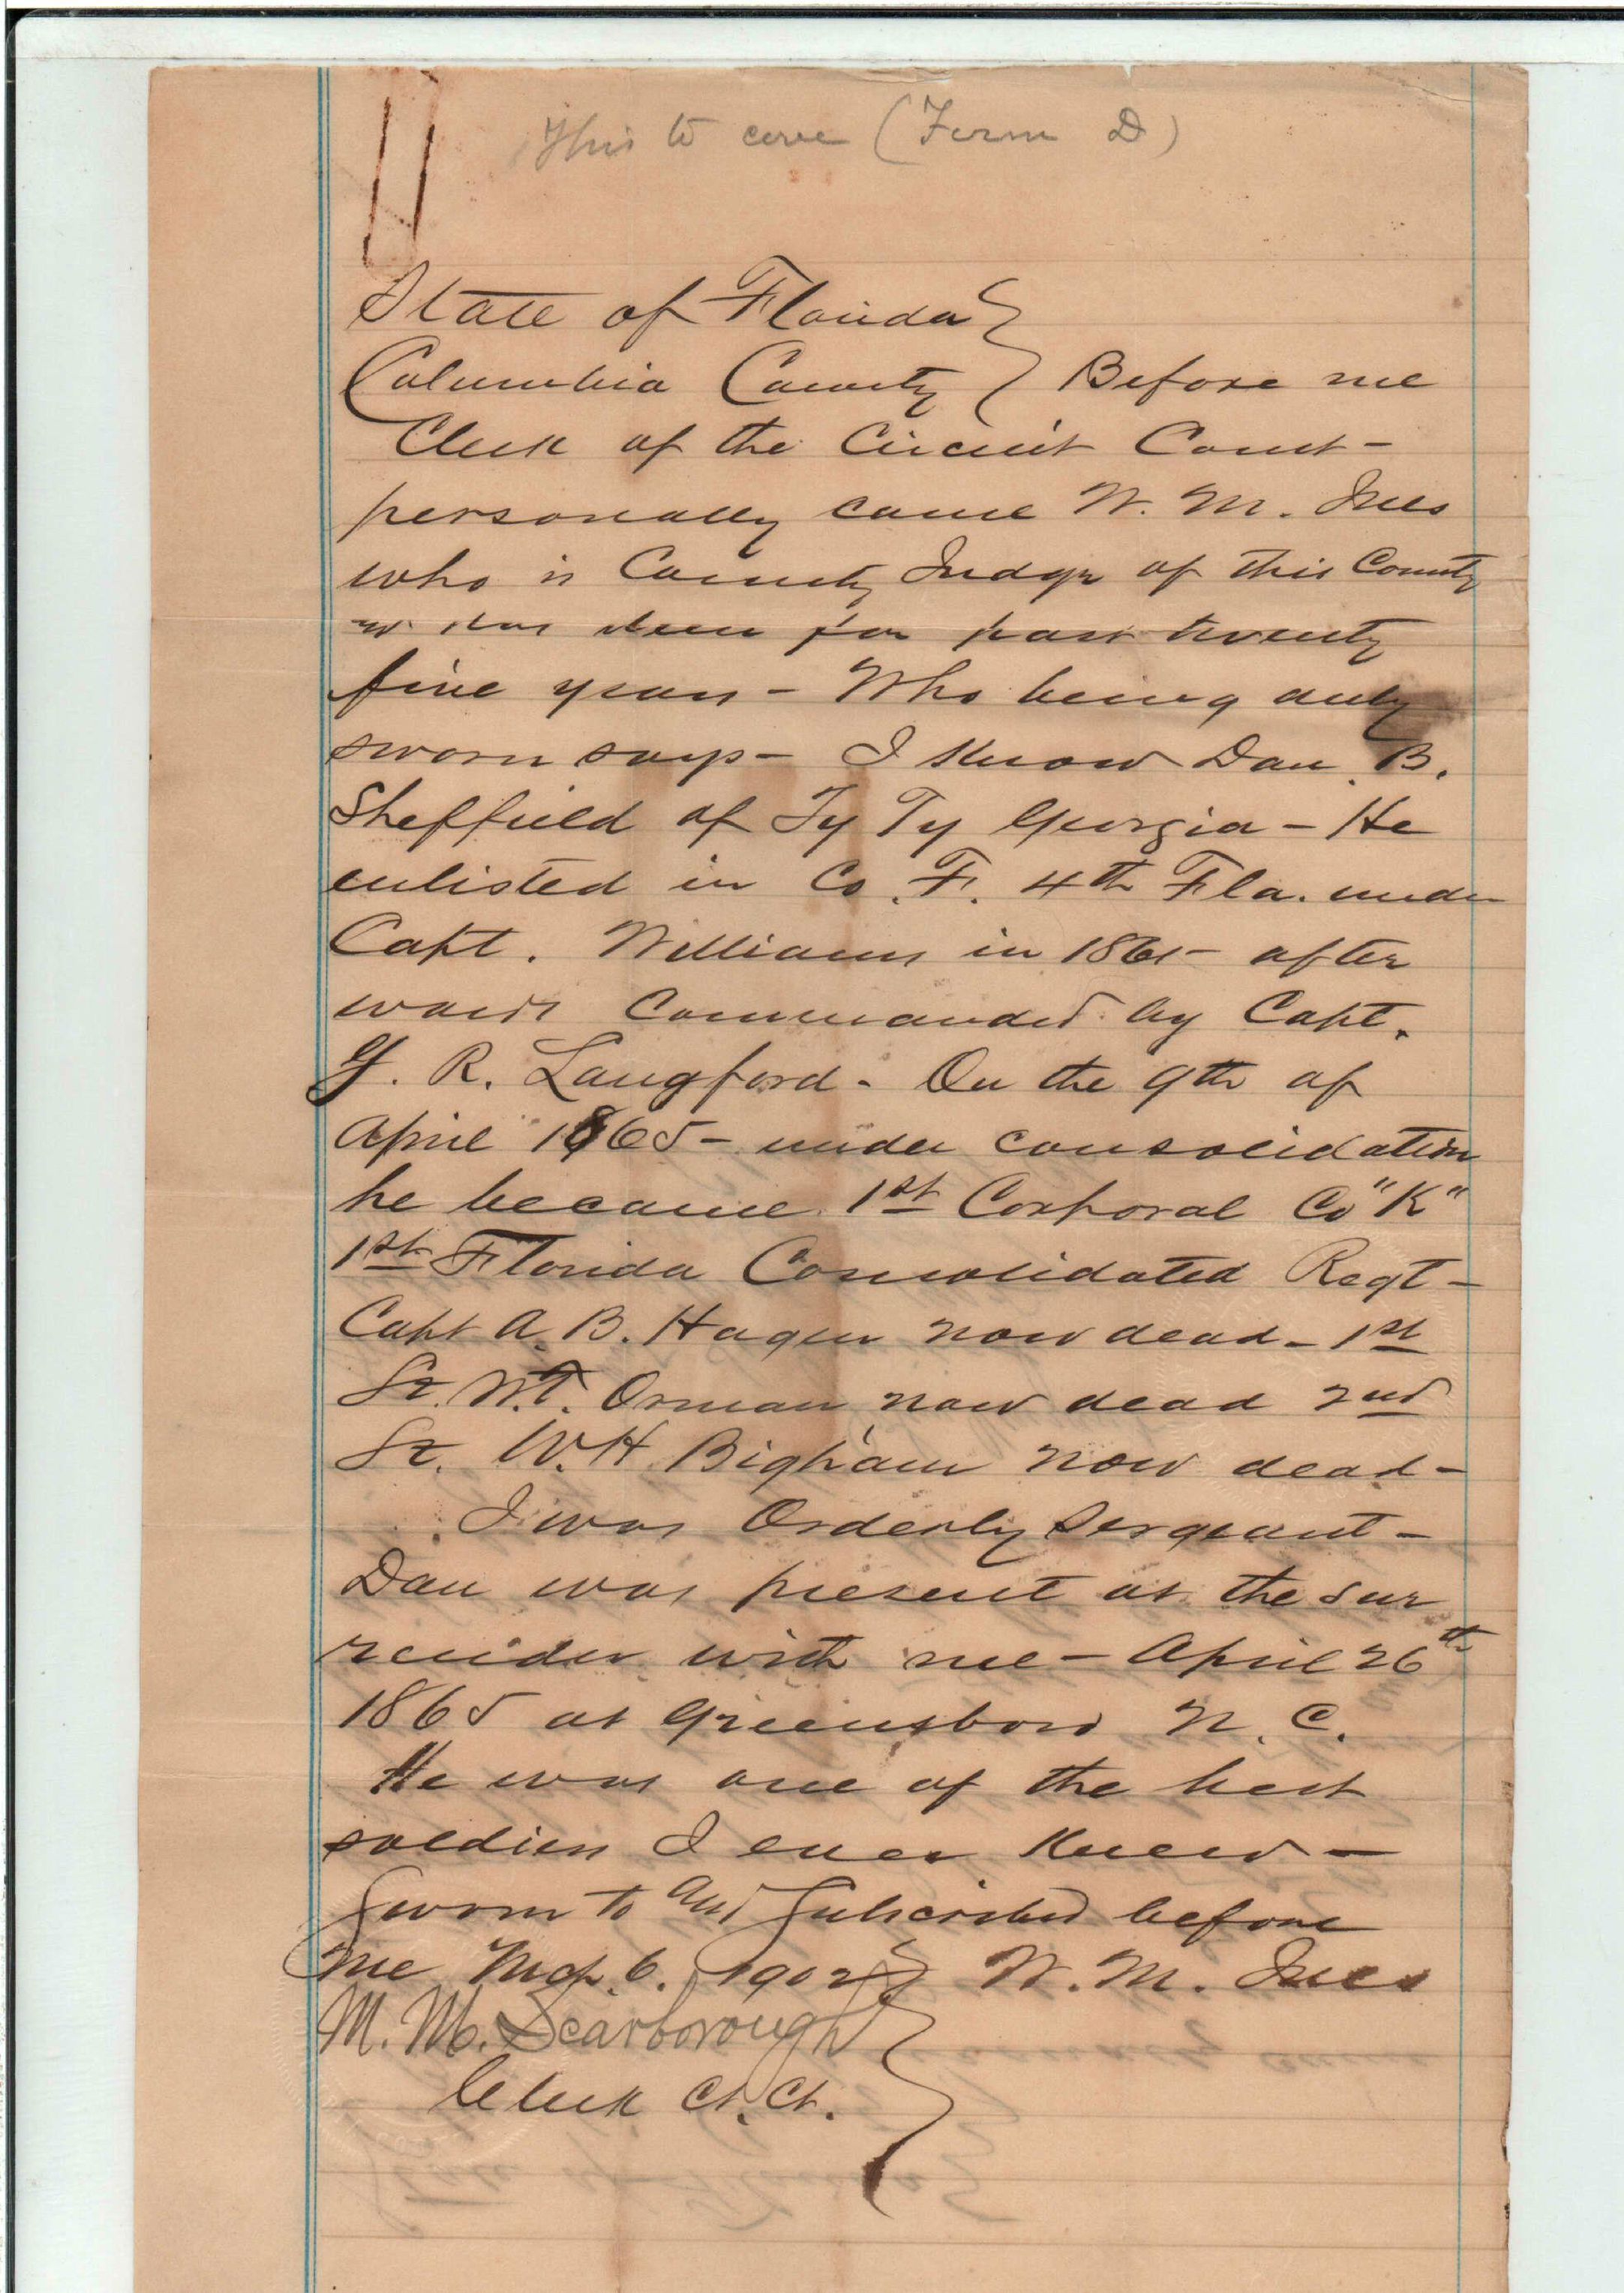 This to cover (Form D)
State of Florida
Columbia County } Before me
Clerk of the Circuit Court -
personally came W. M. Ives
who is County Judge of this County
& has been for past twenty
five years - Who being duly
sworn says - I know Dan. B.
Sheffield of Ty Ty Georgia - He
enlisted in Co. F. 4th Fla. under
Capt. Williams in 1861 - after
wards commanded by Capt.
R. Langford - On the 9th of
April 1865 - under consolidation
he became 1st Corporal Co "K"
1st Florida Consolidated Regt -
Capt A. B. Hagen now dead - 1st
Lt. W.T. Orman now dead 2nd
Lt. W.H. Bigham now dead -
I was Orderly Sergeant -
Dan was present at the sur
render with me - April 26th
1865 at Greensboro N. C.
He was one of the best
soldiers I ever knew -
Sworn to and Subscribed before
me 6. 1902 } W. M. Ives
M. M. Scarborough
Clerk Ct. Ct.